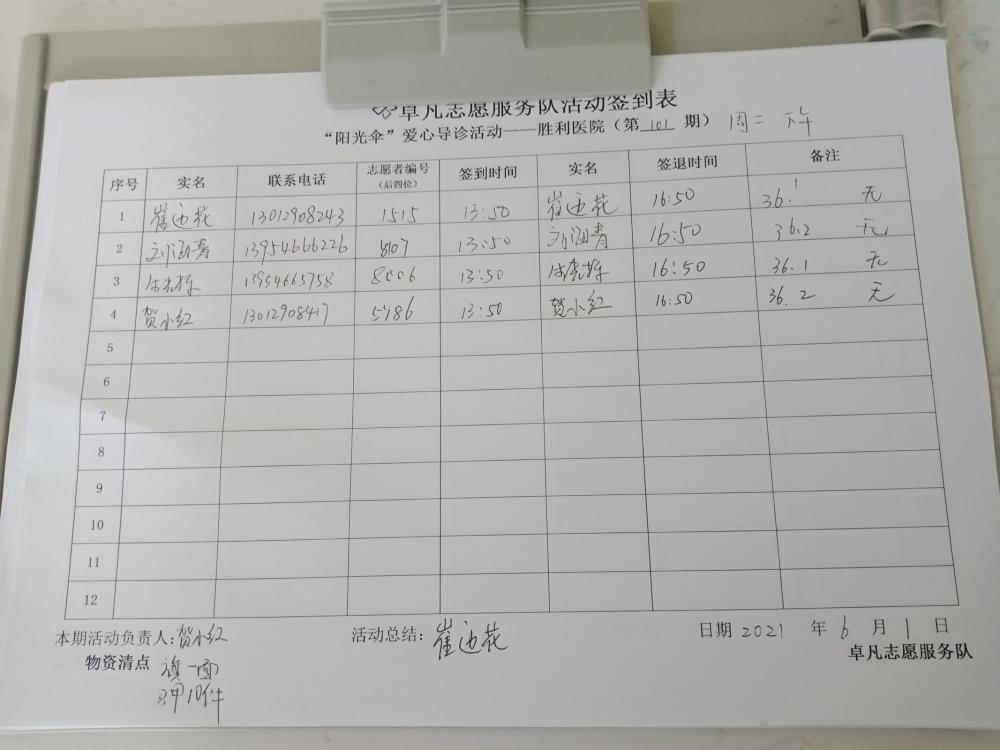 卓凡志愿服务队活动签到表
“阳光伞”爱心导诊活动——胜利医院（第 101 期） 周二 下午
序号 实名 联系电话 志愿者编号（后四位） 签到时间 实名 签退时间 备注
1 崔迎花 13012908243 1515 13:50 崔迎花 16:50 36.1 无
2 刘涵青 13954666226 8107 13:50 刘涵青 16:50 36.2 无
3 13954665758 8006 13:50 16:50 36.1 无
4 贺小红 13012908417 5986 13:50 贺小红 16:50 36.2 无
5
6
7
8
9
10
11
12
本期活动负责人：贺小红 活动总结：崔迎花 日期 2021 年 6 月 1 日
物资清点 旗一面 卓凡志愿服务队
马甲10件